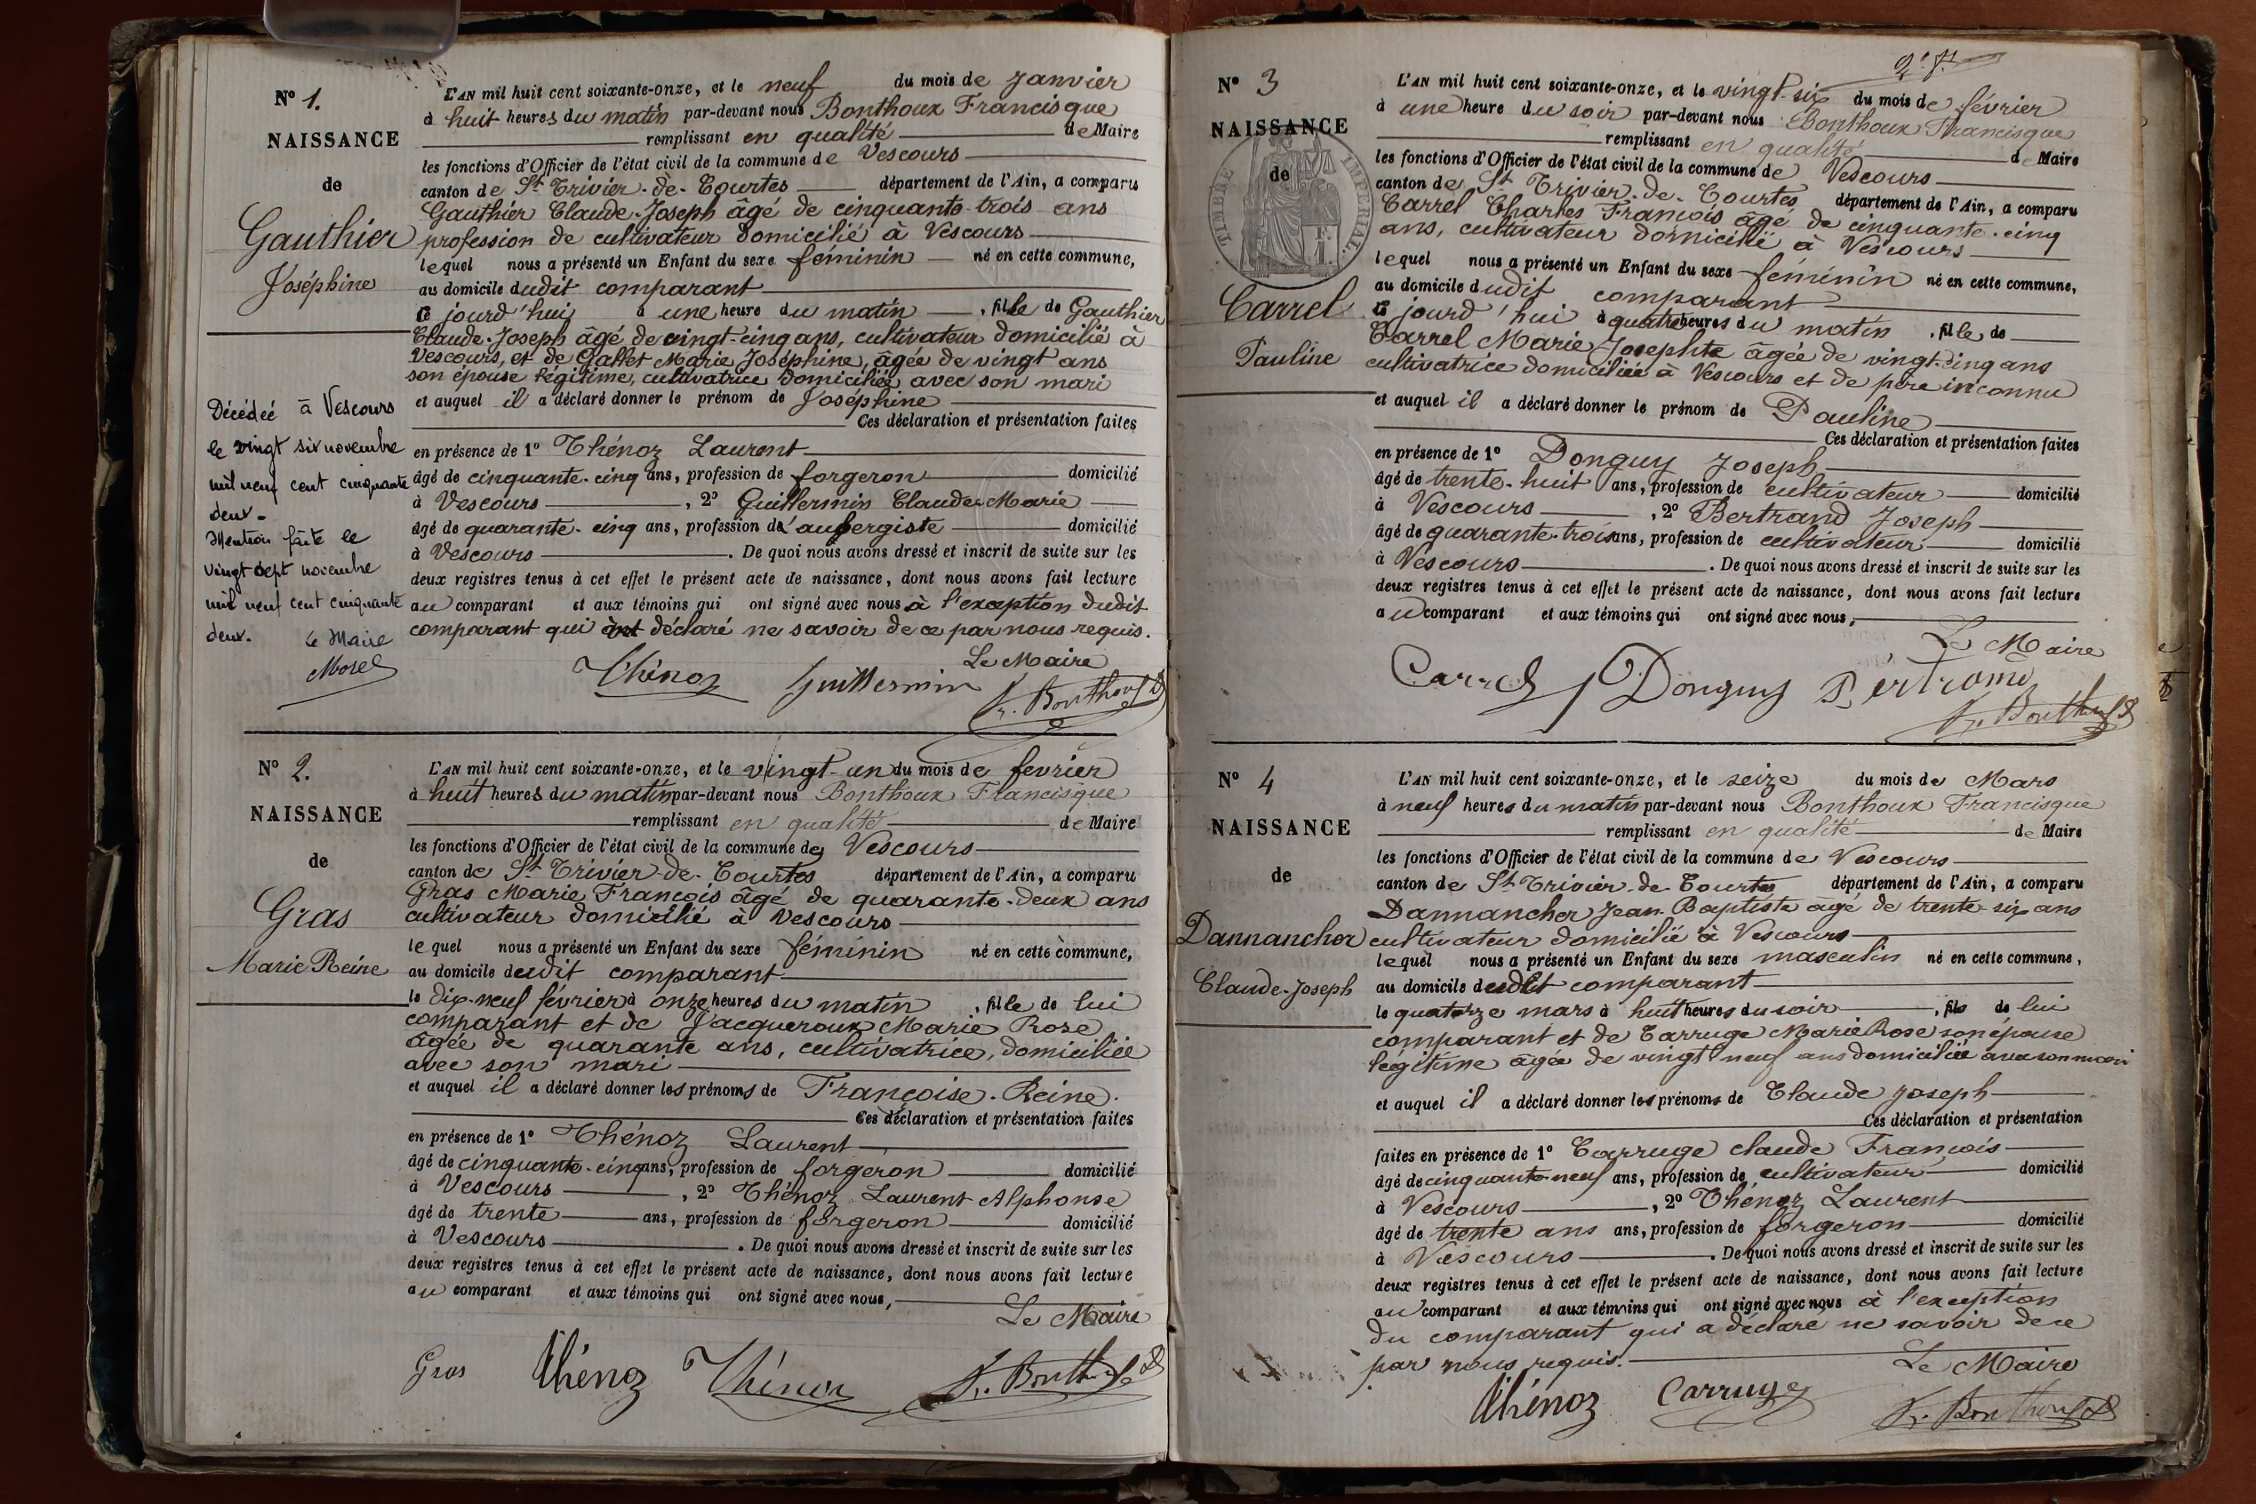 N° 1.
NAISSANCE
de
Gauthier
Joséphine
Décédeé à Vescours
le vingt six novembre
mil neuf cent cinquante
deux.
Mention faite le
vingt sept novembre
mil neuf cent cinquante
deux. Le Maire
Morel
L'AN mil huit cent soixante-onze, et le neuf du mois de Janvier
à huit heures du matin par-devant nous Bonthoux Francisque
remplissant en qualité de Maire
les fonctions d'Officier de l'état civil de la commune de Vescours
canton de St Trivier-de-Courtes département de l'Ain, a comparu
Gauthier Claude-Joseph âgé de cinquante-trois ans
profession de cultivateur domicilié à Vescours
lequel nous a présenté un Enfant du sexe féminin né en cette commune,
au domicile dudit comparant
ce jourd'hui à une heure du matin, fille de Gauthier
Claude-Joseph âgé de vingt-cinq ans, cultivateur domicilié à
Vescours, et de Gallet Marie Joséphine, âgée de vingt ans
son épouse légitime, cultivatrice domiciliée avec son mari
et auquel il a déclaré donner le prénom de Joséphine
Ces déclaration et présentation faites
en présence de 1° Thénoz Laurent
âgé de cinquante-cinq ans, profession de forgeron domicilié
à Vescours, 2° Guillermin Claude-Marie
âgé de quarante-cinq ans, profession de aubergiste domicilié
à Vescours. De quoi nous avons dressé et inscrit de suite sur les
deux registres tenus à cet effet le présent acte de naissance, dont nous avons fait lecture
au comparant et aux témoins qui ont signé avec nous à l'exception dudit
comparant qui a déclaré ne savoir de ce par nous requis.
Le Maire
Thénoz Guillermin Fr. Bonthoux
N° 2.
NAISSANCE
de
Gras
Marie Reine
L'AN mil huit cent soixante-onze, et le vingt-un du mois de fevrier
à huit heures du matin par-devant nous Bonthoux Francisque
remplissant en qualité de Maire
les fonctions d'Officier de l'état civil de la commune de Vescours
canton de St Trivier-de-Courtes département de l'Ain, a comparu
Gras Marie François âgé de quarante-deux ans
cultivateur domicilié à Vescours
lequel nous a présenté un Enfant du sexe féminin né en cette commune,
au domicile dudit comparant
le dix-neuf février à onze heures du matin, fille de lui
comparant et de Jacqueroux Marie Rose
âgée de quarante ans, cultivatrice, domiciliée
avec son mari
et auquel il a déclaré donner les prénoms de Françoise-Reine.
Ces déclaration et présentation faites
en présence de 1° Thénoz Laurent
âgé de cinquante-cinq ans, profession de forgeron domicilié
à Vescours, 2° Thénoz Laurent Alphonse
âgé de trente ans, profession de forgeron domicilié
à Vescours. De quoi nous avons dressé et inscrit de suite sur les
deux registres tenus à cet effet le présent acte de naissance, dont nous avons fait lecture
au comparant et aux témoins qui ont signé avec nous,
Le Maire
Gras Thénoz Thénoz Fr. Bonthoux
N° 3
NAISSANCE
de
TIMBRE IMPERIAL
Carrel
Pauline
L'AN mil huit cent soixante-onze, et le vingt-six du mois de février
à une heure du soir par-devant nous Bonthoux Francisque
remplissant en qualité de Maire
les fonctions d'Officier de l'état civil de la commune de Vescours
canton de St Trivier-de-Courtes département de l'Ain, a comparu
Carrel Charles François âgé de cinquante-cinq
ans, cultivateur domicilié à Vescours
lequel nous a présenté un Enfant du sexe féminin né en cette commune,
au domicile dudit comparant
ce jourd'hui à quatre heures du matin, fille de
Carrel Marie Josephte âgée de vingt-cinq ans
cultivatrice domiciliée à Vescours et de père inconnu
et auquel il a déclaré donner le prénom de Pauline
Ces déclaration et présentation faites
en présence de 1° Donguy Joseph
âgé de trente-huit ans, profession de cultivateur domicilié
à Vescours, 2° Bertrand Joseph
âgé de quarante-trois ans, profession de cultivateur domicilié
à Vescours. De quoi nous avons dressé et inscrit de suite sur les
deux registres tenus à cet effet le présent acte de naissance, dont nous avons fait lecture
au comparant et aux témoins qui ont signé avec nous,
Le Maire
Carrel J Donguy Bertrand
Fr. Bonthoux
N° 4
NAISSANCE
de
Dannancher
Claude-Joseph
L'AN mil huit cent soixante-onze, et le seize du mois de Mars
à neuf heures du matin par-devant nous Bonthoux Francisque
remplissant en qualité de Maire
les fonctions d'Officier de l'état civil de la commune de Vescours
canton de St Trivier-de-Courtes département de l'Ain, a comparu
Dannancher Jean-Baptiste âgé de trente-six ans
cultivateur domicilié à Vescours
lequel nous a présenté un Enfant du sexe masculin né en cette commune,
au domicile dudit comparant
le quatorze mars à huit heures du soir, fils de lui
comparant et de Carruge Marie Rose son épouse
légitime âgée de vingt neuf ans domiciliée avec son mari
et auquel il a déclaré donner les prénoms de Claude Joseph
Ces déclaration et présentation
faites en présence de 1° Carruge Claude François
âgé de cinquante-neuf ans, profession de cultivateur domicilié
à Vescours, 2° Thénoz Laurent
âgé de trente ans ans, profession de forgeron domicilié
à Vescours. De quoi nous avons dressé et inscrit de suite sur les
deux registres tenus à cet effet le présent acte de naissance, dont nous avons fait lecture
au comparant et aux témoins qui ont signé avec nous à l'exception
du comparant qui a déclaré ne savoir de ce
par nous requis.
Le Maire
Thénoz Carruge Fr. Bonthoux